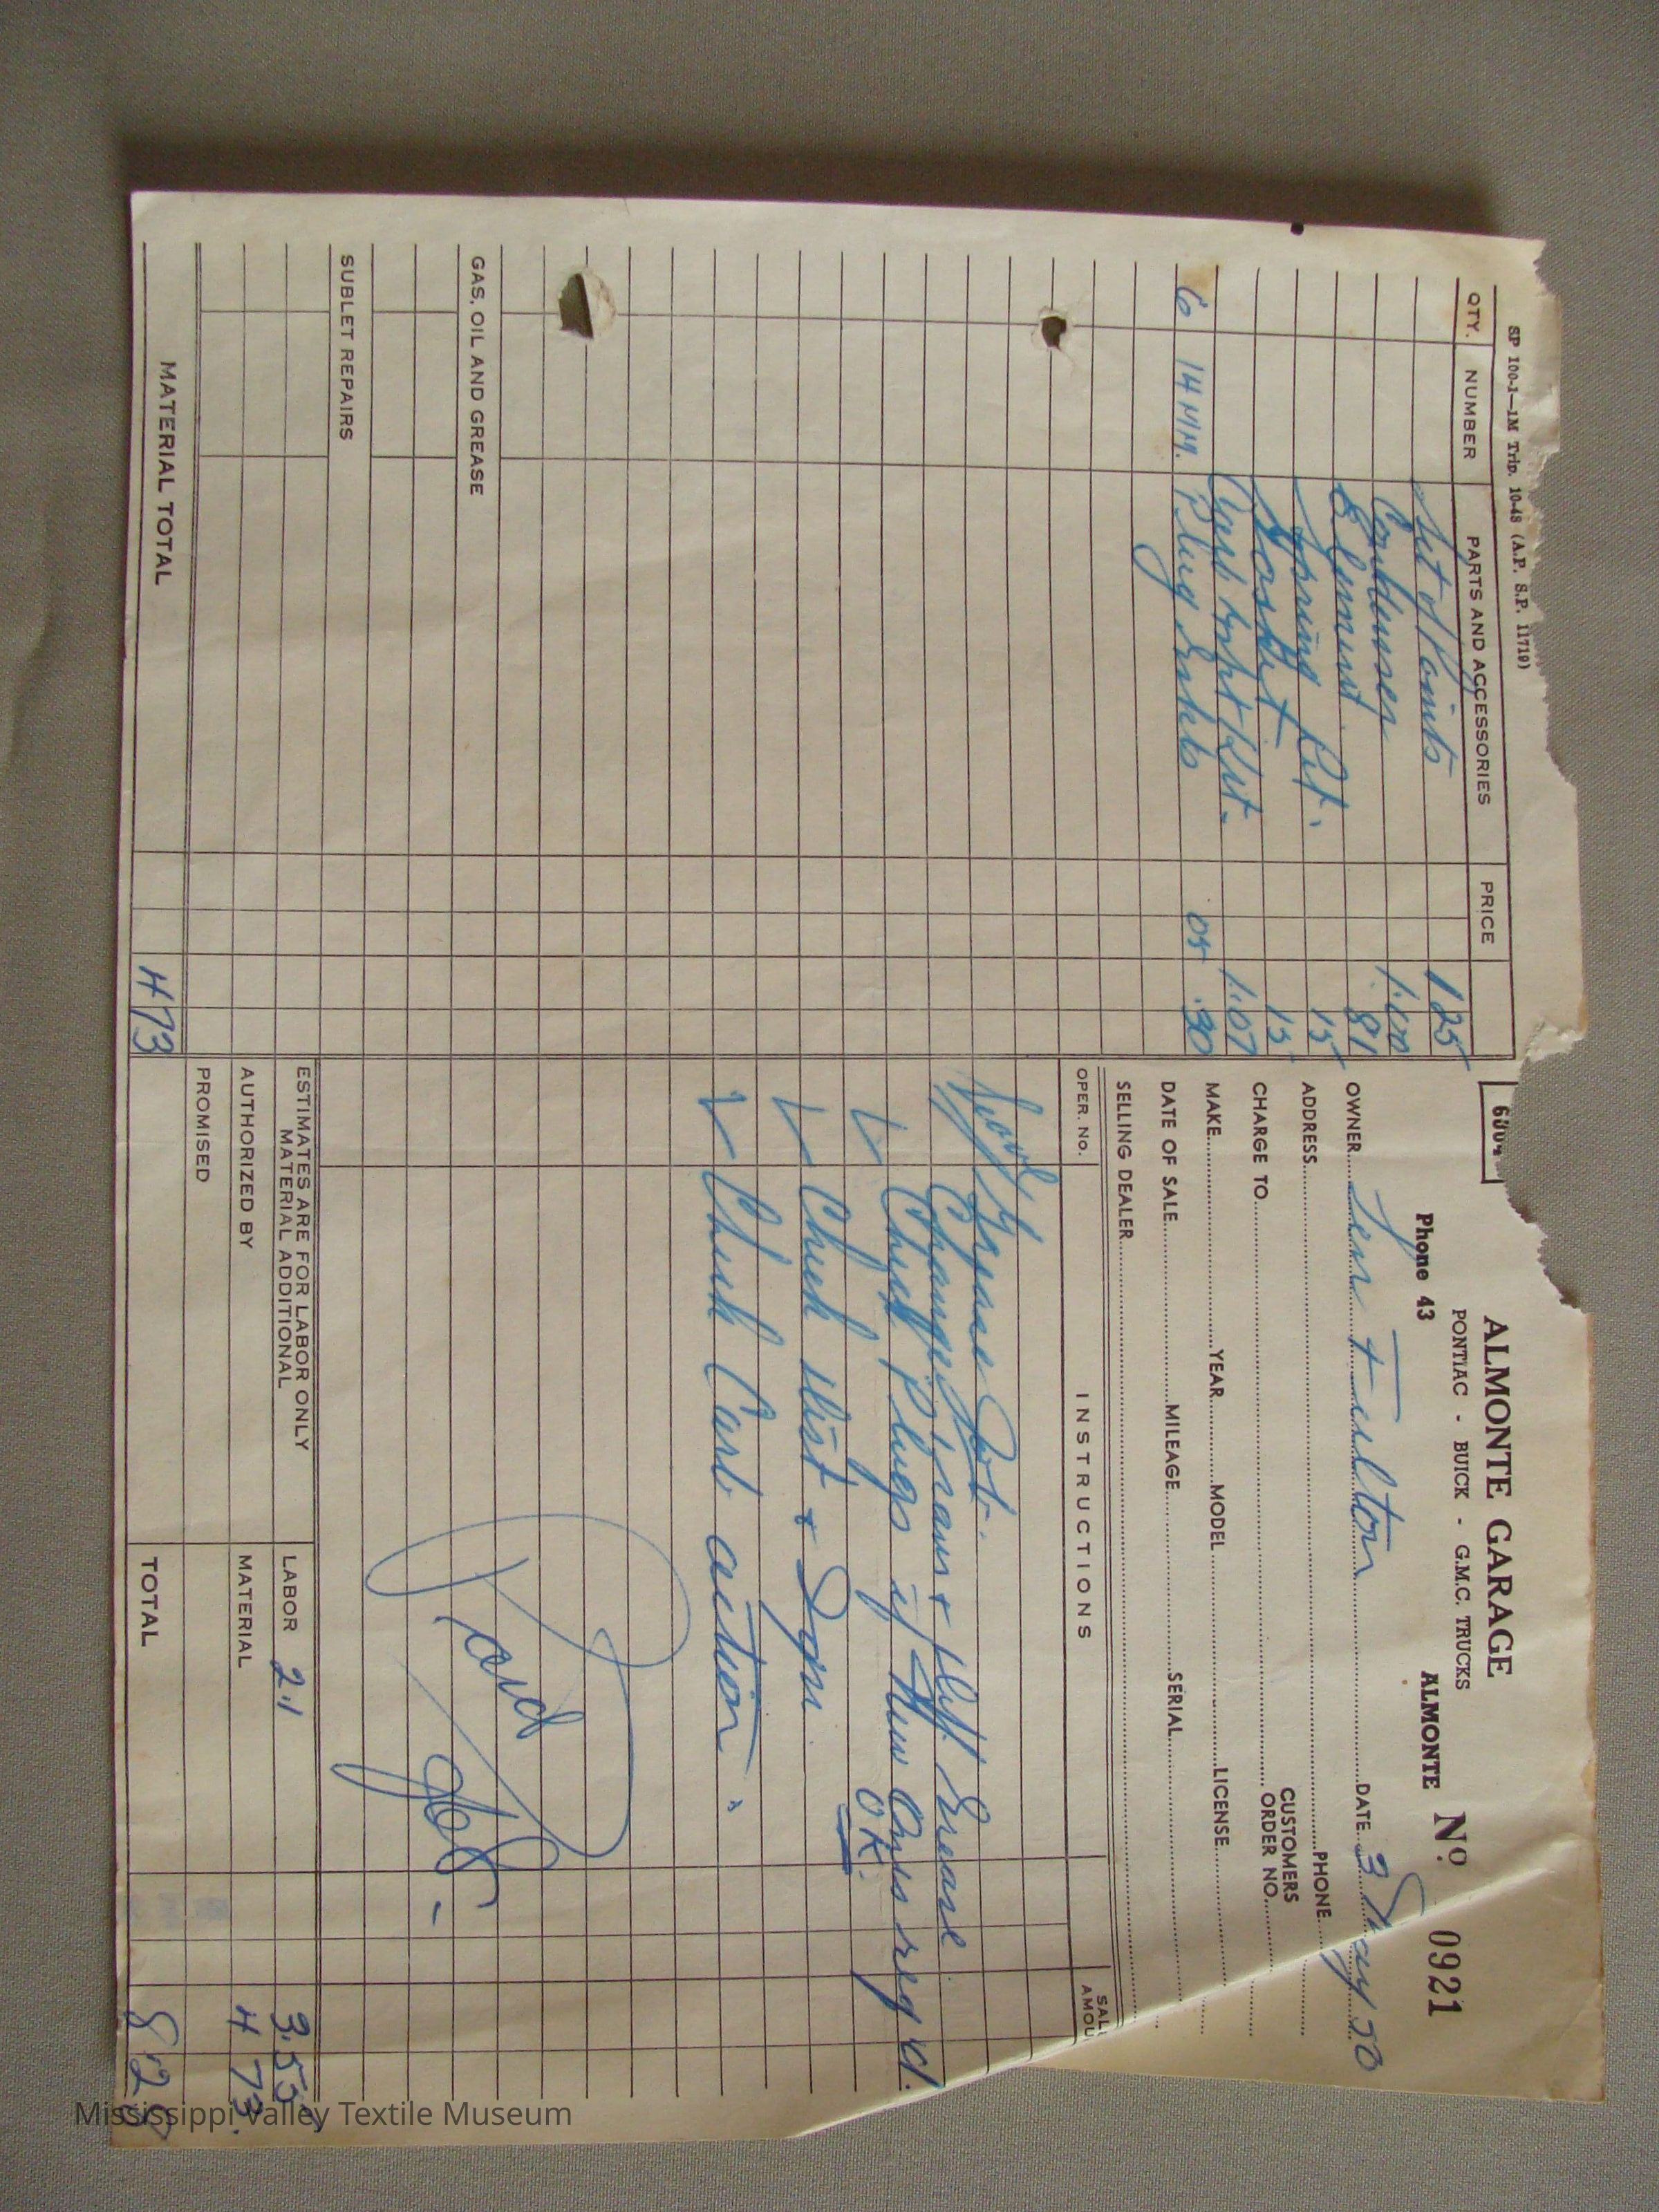 SP 100-1—1M Trip. 10-48 (A.P. S.P. 11719)
QTY. NUMBER PARTS AND ACCESSORIES PRICE
Set of Points 1 25
Condenser 1.00
Element .81
Spring Ret. 15
Gasket 15
Carb Kit. 1.07
6 14 MM. Plug Gaskets 05 .30
GAS, OIL AND GREASE
SUBLET REPAIRS
MATERIAL TOTAL 4 73
ALMONTE GARAGE
PONTIAC - BUICK - G.M.C. TRUCKS
Phone 43 ALMONTE No. 0921
OWNER Fulton DATE 3 May 50
ADDRESS PHONE
CHARGE TO CUSTOMERS ORDER NO.
MAKE YEAR MODEL LICENSE
DATE OF SALE MILEAGE SERIAL
SELLING DEALER
OPER. No. INSTRUCTIONS
Grease Job.
Change Trans + Diff. Grease
Check Plugs if New Ones req'd.
OK.
Check Dist + Ign.
Check Carb action.
Paid
ESTIMATES ARE FOR LABOR ONLY
MATERIAL ADDITIONAL
LABOR 2.1 3.55
AUTHORIZED BY MATERIAL 4 73
PROMISED
TOTAL 8 28
Mississippi Valley Textile Museum